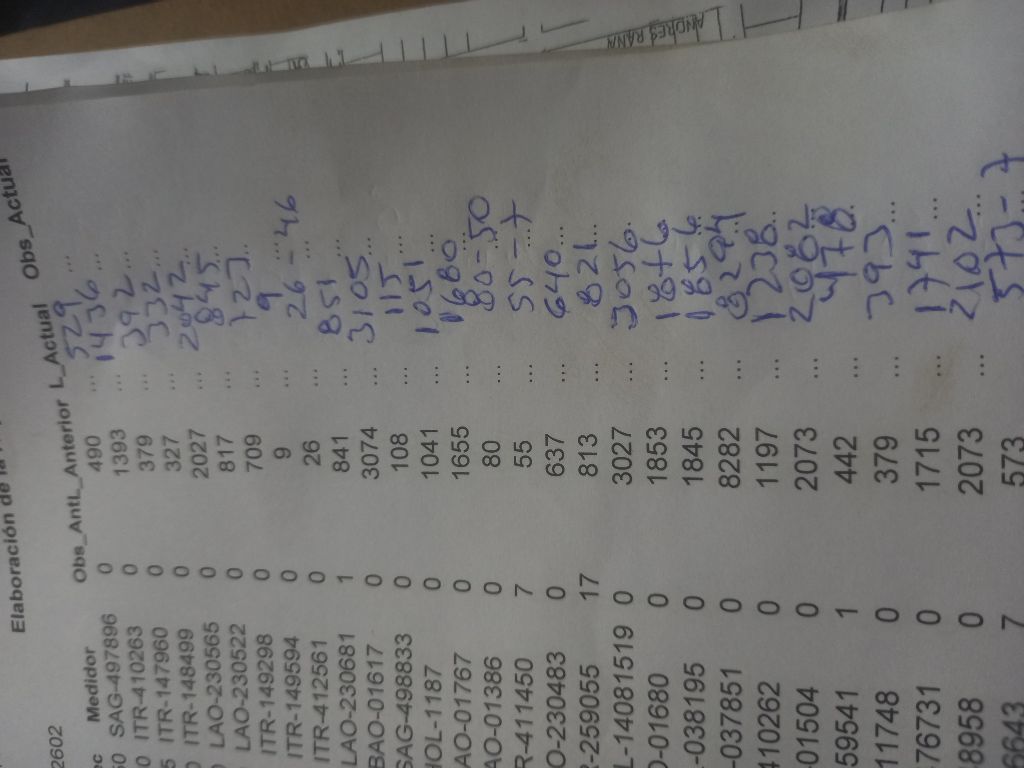 ANDRES BANN
Elaboración de la
2602
ec Medidor Obs_Ant L_Anterior L_Actual Obs_Actual
50 SAG-497896 0 490 ... 529 ...
0 ITR-410263 0 1393 ... 1436 ...
5 ITR-147960 0 379 ... 392 ...
0 ITR-148499 0 327 ... 332 ...
LAO-230565 0 2027 ... 2042 ...
LAO-230522 0 817 ... 845 ...
ITR-149298 0 709 ... 723 ...
ITR-149594 0 9 ... 9 ...
ITR-412561 0 26 ... 26 - 46
LAO-230681 1 841 ... 851 ...
BAO-01617 0 3074 ... 3105 ...
SAG-498833 0 108 ... 115 ...
HOL-11187 0 1041 ... 1051 ...
AO-01767 0 1655 ... 1680
AO-01386 0 80 ... 80-50
R-411450 7 55 ... 55-7
O-230483 0 637 ... 640 ...
R-259055 17 813 ... 821 ...
L-14081519 0 3027 ... 3056 ...
O-01680 0 1853 ... 1876 ...
-038195 0 1845 ... 1856 ...
-037851 0 8282 ... 8294 ...
410262 0 1197 ... 1238 ...
01504 0 2073 ... 2082 ...
59541 1 442 ... 478 ...
11748 0 379 ... 393 ...
76731 0 1715 ... 1741 ...
8958 0 2073 ... 2102 ...
6643 7 573 ... 573-7